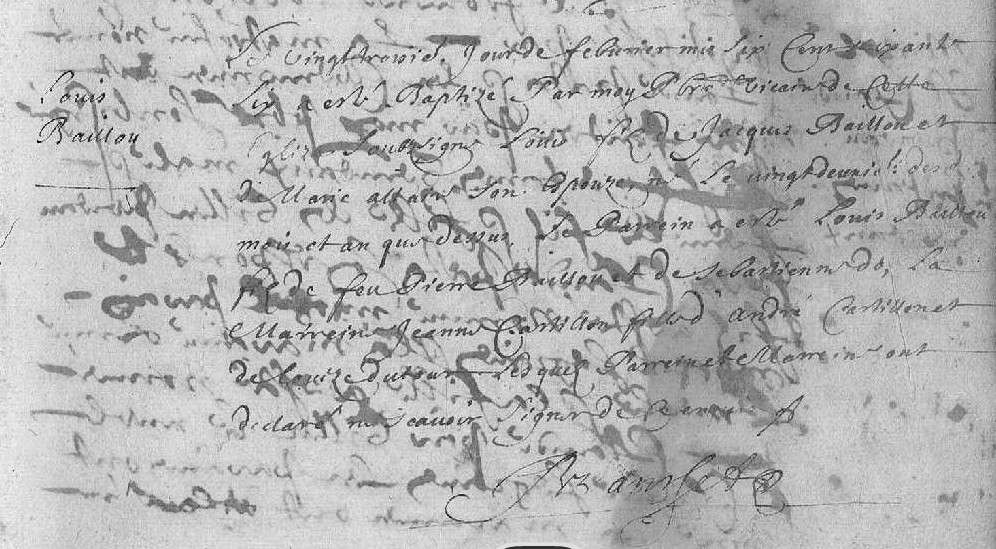 Louis
Baillou
Le vingt trois.e Jour de febvrier mis six Cent soixante
six a esté Baptizé Par moy Pbre Vicaire de Cette
Eglize Soubzigné Louis filz de Jacques Baillou et
de Marie son Epouze né Le vingt deuxie.
mois et an que dessus, Le Parrein a esté Louis Baillou
filz de feu Pierre Baillou et de Sebastienne La
Marreine Jeanne Castillon fille d'André Castillon et
de Louize dutour Lesquelz Parrein et Marreine ont
declaré ne scavoir Signer de ce